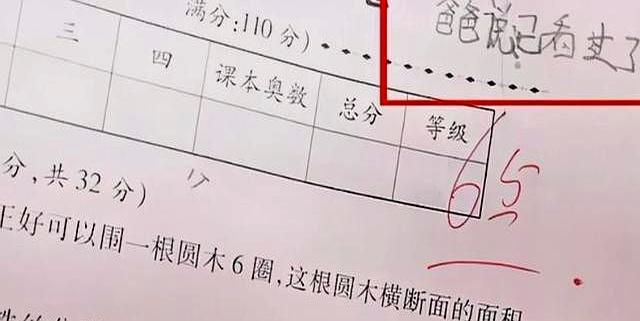 爸爸说已看过了
满分:110 分)
三 四 课本奥数 总分 等级
65
分,共 32 分)
正好可以围一根圆木 6 圈,这根圆木横断面的面积